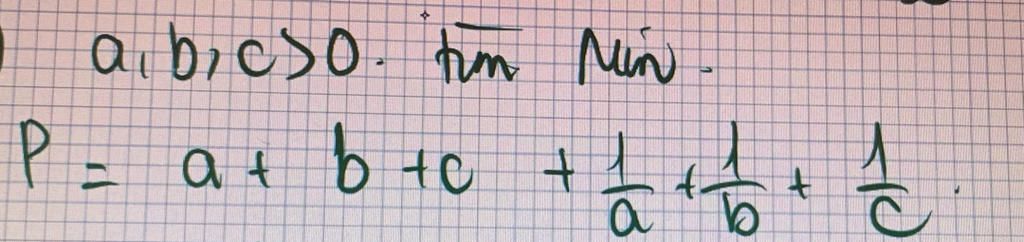 a, b, c > 0. tìm Min.
P = a + b + c + 1/a + 1/b + 1/c.